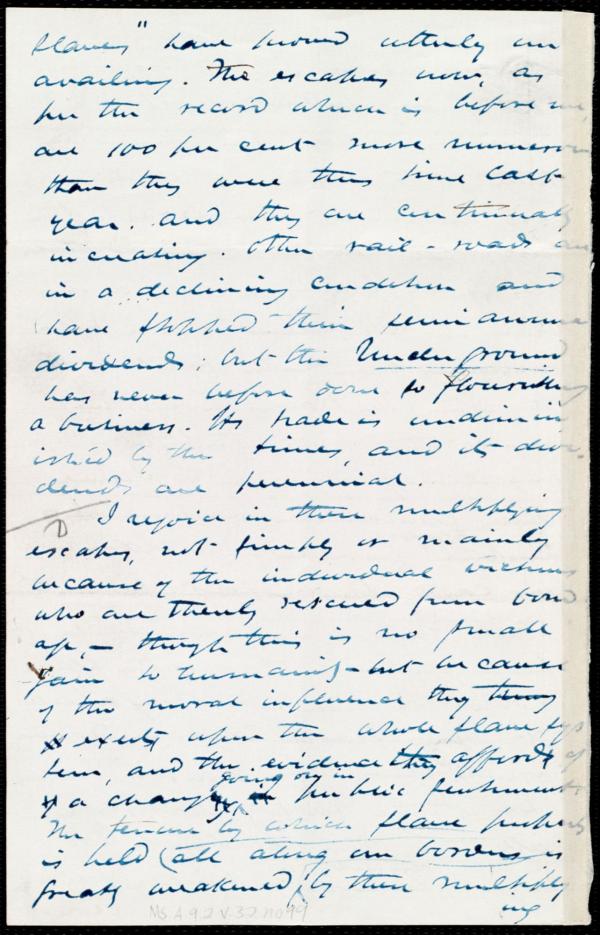 slaves" have proved utterly un
availing. The escapes now, as
per the record which is before me,
are 100 per cent more numerous
than they were this time last
year. and they are continually
increasing. Other rail-roads are
in a declining condition and
have stopped their semi annual
dividends; but the Underground
has never before done so flourishing
a business. Its trade is undimin
ished by the times, and its divi-
dends are perennial.
I rejoice in these multiplying
escapes, not simply or mainly
because of the individual victims
who are thereby rescued from bond
age,— though this is no small
gain to humanity— but because
of the moral influence they
exert upon the whole slave sys
tem, and the evidence they afford of
a change going on in public sentiment.
The tenure by which slave property
is held (all along our borders is
greatly weakened, by these multiply
ing
Ms.A.9.2 v.32 no 99